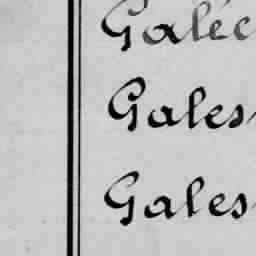 Galéc
Gales
Gales